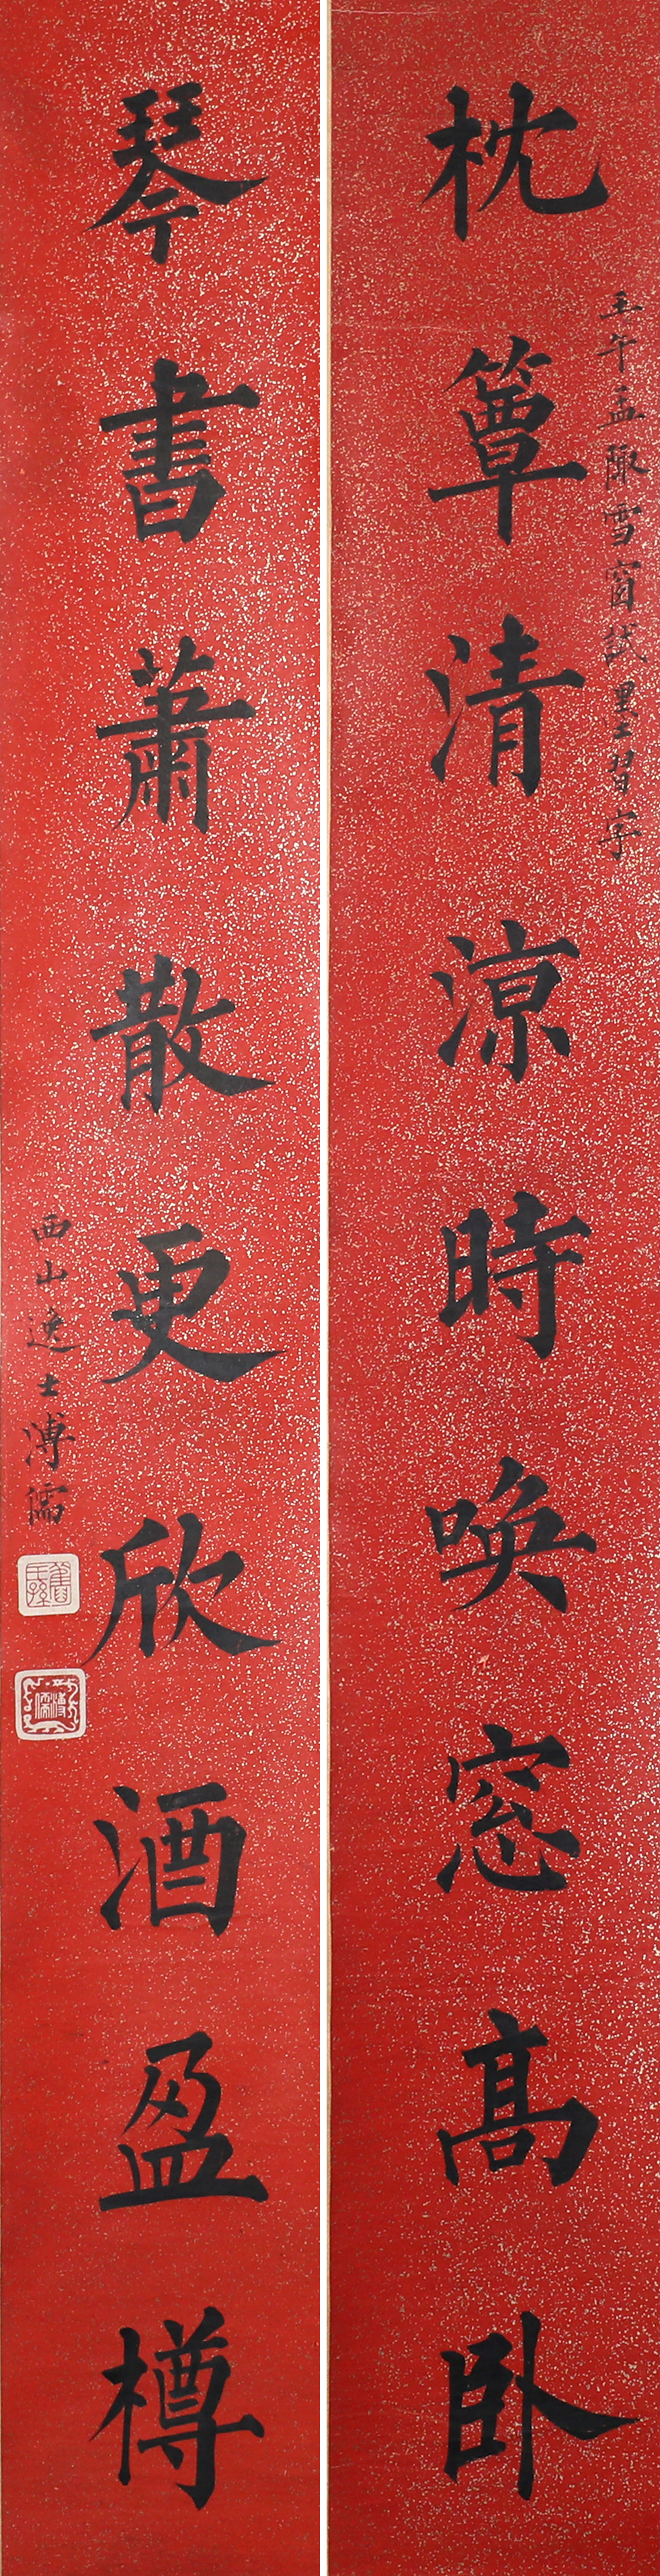 壬午孟陬雪窗試墨習字
枕簟清涼時喚窓高卧
琴書蕭散更欣酒盈樽
西山逸士溥儒
舊王孫
溥儒